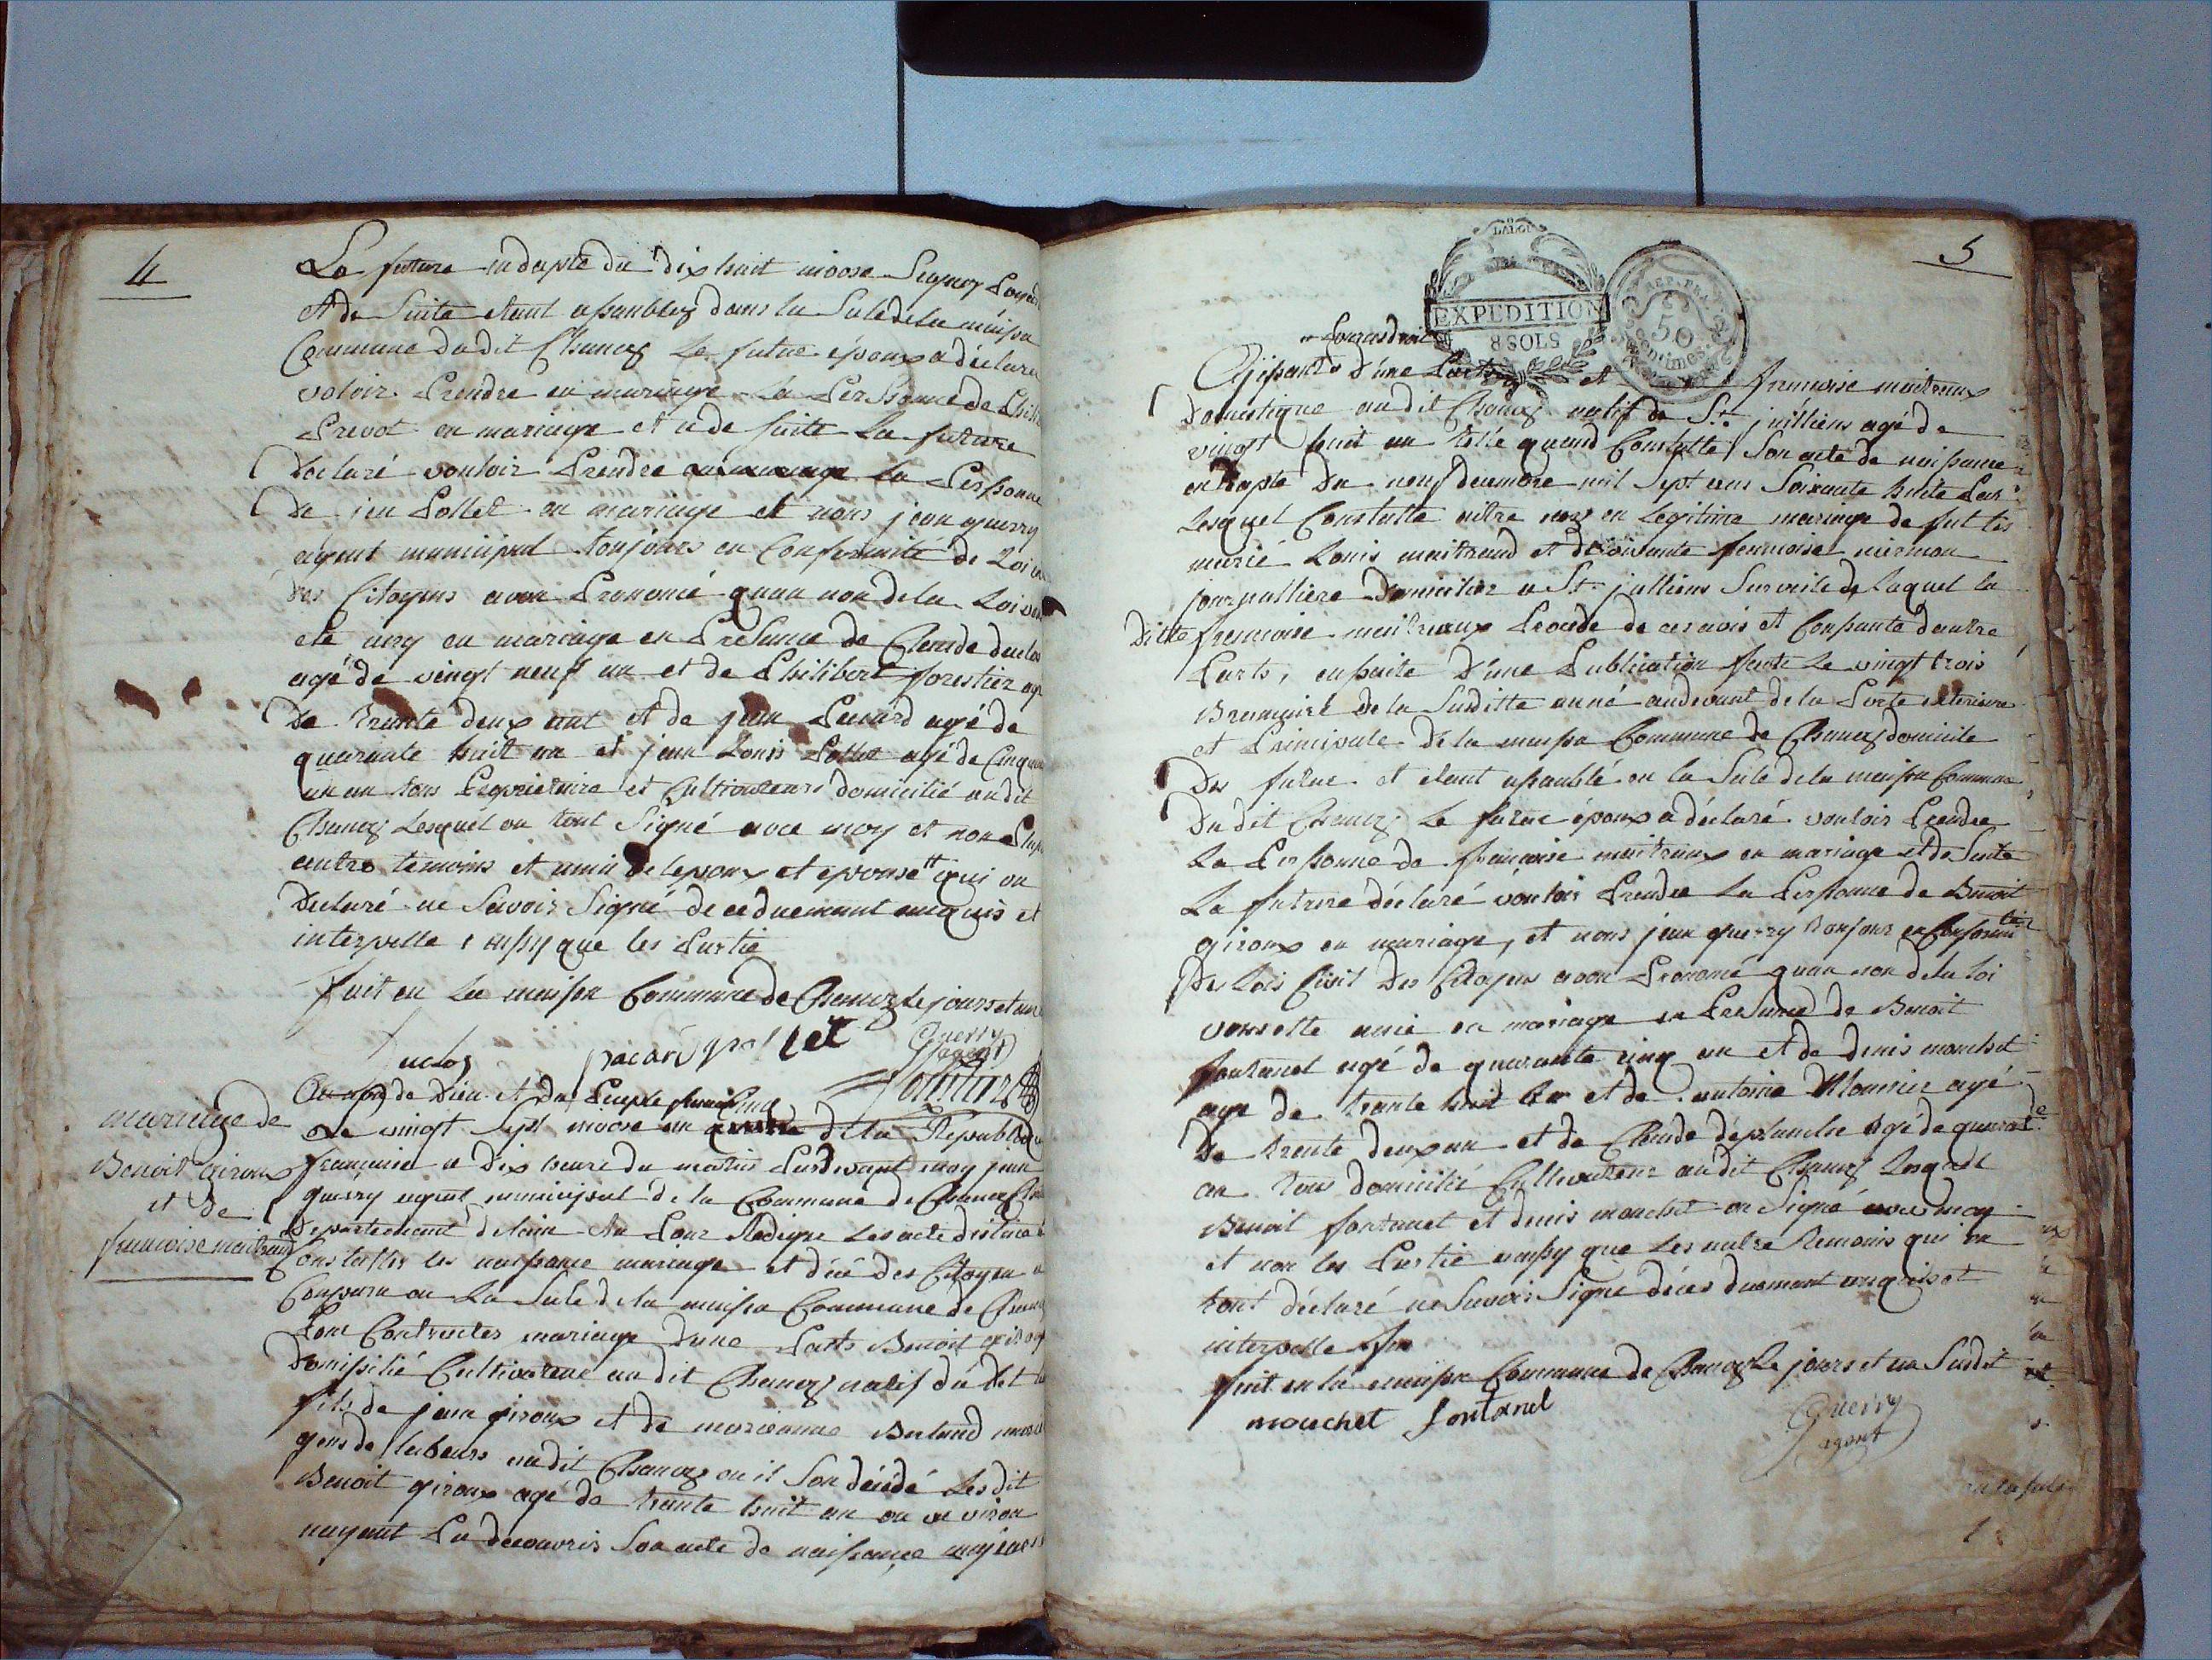 4
La future en dapte du dix huit nivose
et de suite étant assamblez dans la sale de la maison
Commune dudit Chanoz le future époux a déclaré
voloir Prendre en mariage la Personne de
Prevot en mariage et a de suite la future
déclaré vouloir Prendre la Personne
de jen Pollet en mariage et nous jean guerry
agent municipal toujours en Conformité de Loi
des Citoyens avon Prononcé quau non de la Loi
été uny en mariage en Présance de Claude duclo
agé de vingt neuf an et de Philibert forestier agé
de trante deux ant et de jean Pacard agé de
quarante huit an et jean Louis Pollet agé de
un an tous Propriétaire et Cultivateur domicilié audit
Chanoz Lesquel on tout Signé avec moy et non
autre temoins et amis de lepoux et epouse qui on
Déclaré ne Savoir Signé de ce duemant anquis et
interpelle ausy que les Partie
fait en La maison Commune de Chanoz le jours et an
duclos pacard pollet Guerry
agent
mariage de
Benoit giroux
et de
francoise maitraux
Au nom de Dieu et du Peuple
Le vingt Sept nivose an de la Republique
française a dix heure du matin Pardevant moy jean
guerry agent municipal de la Commune de Chanoz
Departement de lain elu Pour Redigre Les acte distiné a
Constatter les naissance mariage et décé des Citoyen
Conparu en La Sale de la maison Commune de Chanoz
Pour Contracter mariage dune Parts Benoit giroux
Domisilié Cultivateur audit Chanoz natif du dit
fils de jean giroux et de marianne Berland
gens de labeurs audit Chanoz ou il Son décédé Ledit
Benoit giroux agé de trante huit an ou anviron
nayant Pu découvris Son acte de naissance majeurs
5
EXPEDITION
8 SOLS
REP. FRA.
50
centimes
Ajissant d'une Parts et francoise maitraux
domestique audit Chanoz natif de St. juilliens agé de
vingt huit an tellé quand Constatte Son acte de naissance
en dapte du neuf decembre mil Sept cens Soixante huite Par
Lesquel Constatte aitre nez en Legitime mariage de fut
marié Louis maitraud et de vivante francoise
journalliere domicilier a St. julliens Sur vaile de Laquel la
Ditte francoise maitraux Procede de ces avis et Consante dautre
Parts, ensuite D'une Publication faite Le vingt trois
Brumaire de la Susditte anné audevant de la Porte exterieure
et Principale de la maison Commune de Chanoz domicile
Des future et etant assamblé en la Sale de la maison Commune
Du dit Chanoz Le future époux a déclaré vouloir Prendre
La Personne de francoise maitraux en mariage et de Suite
La future déclaré vouloir Prendre La Personne de Benoit
giroux en mariage, et nous jean guerry Toujour en Conformité
De Lois Civil Des Citoyens avon Prononcé quau non de la Loi
vous ette unie en mariage en Présance de Benoit
fontanet agé de quarante cinq an et de denis mouchet
age de trante huit an et de antoine Mounier agé
De trente deux an et de Claude déplanche agé de quarante
an tous domicilié Cultivateur audit Chanoz Lesquel
Benoit fontanet et denis mouchet on Signé avec moy
et non les Partie ausy que Les autre Temoins qui on
tout déclaré ne Savoir Signé déces duemant anquis et
interpelle
fait en la maison Commune de Chanoz Le jours et an Susdit
mouchet fontanel Guerry
agent